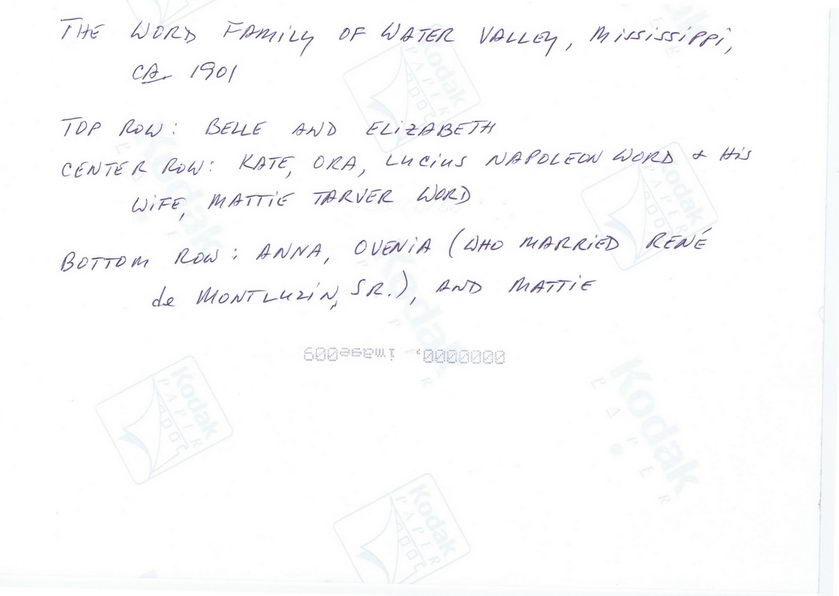 THE WORD FAMILY OF WATER VALLEY, MISSISSIPPI,
CA. 1901
TOP ROW: BELLE AND ELIZABETH
CENTER ROW: KATE, ORA, LUCIUS NAPOLEON WORD & HIS
WIFE, MATTIE TARVER WORD
BOTTOM ROW: ANNA, OVENIA (WHO MARRIED RENÉ
de MONTLUZIN, SR.), AND MATTIE
0000000, image009
Kodak
PAPER
Kodak
PAPER
Kodak
PAPER
Kodak
PAPER
Kodak
PAPER